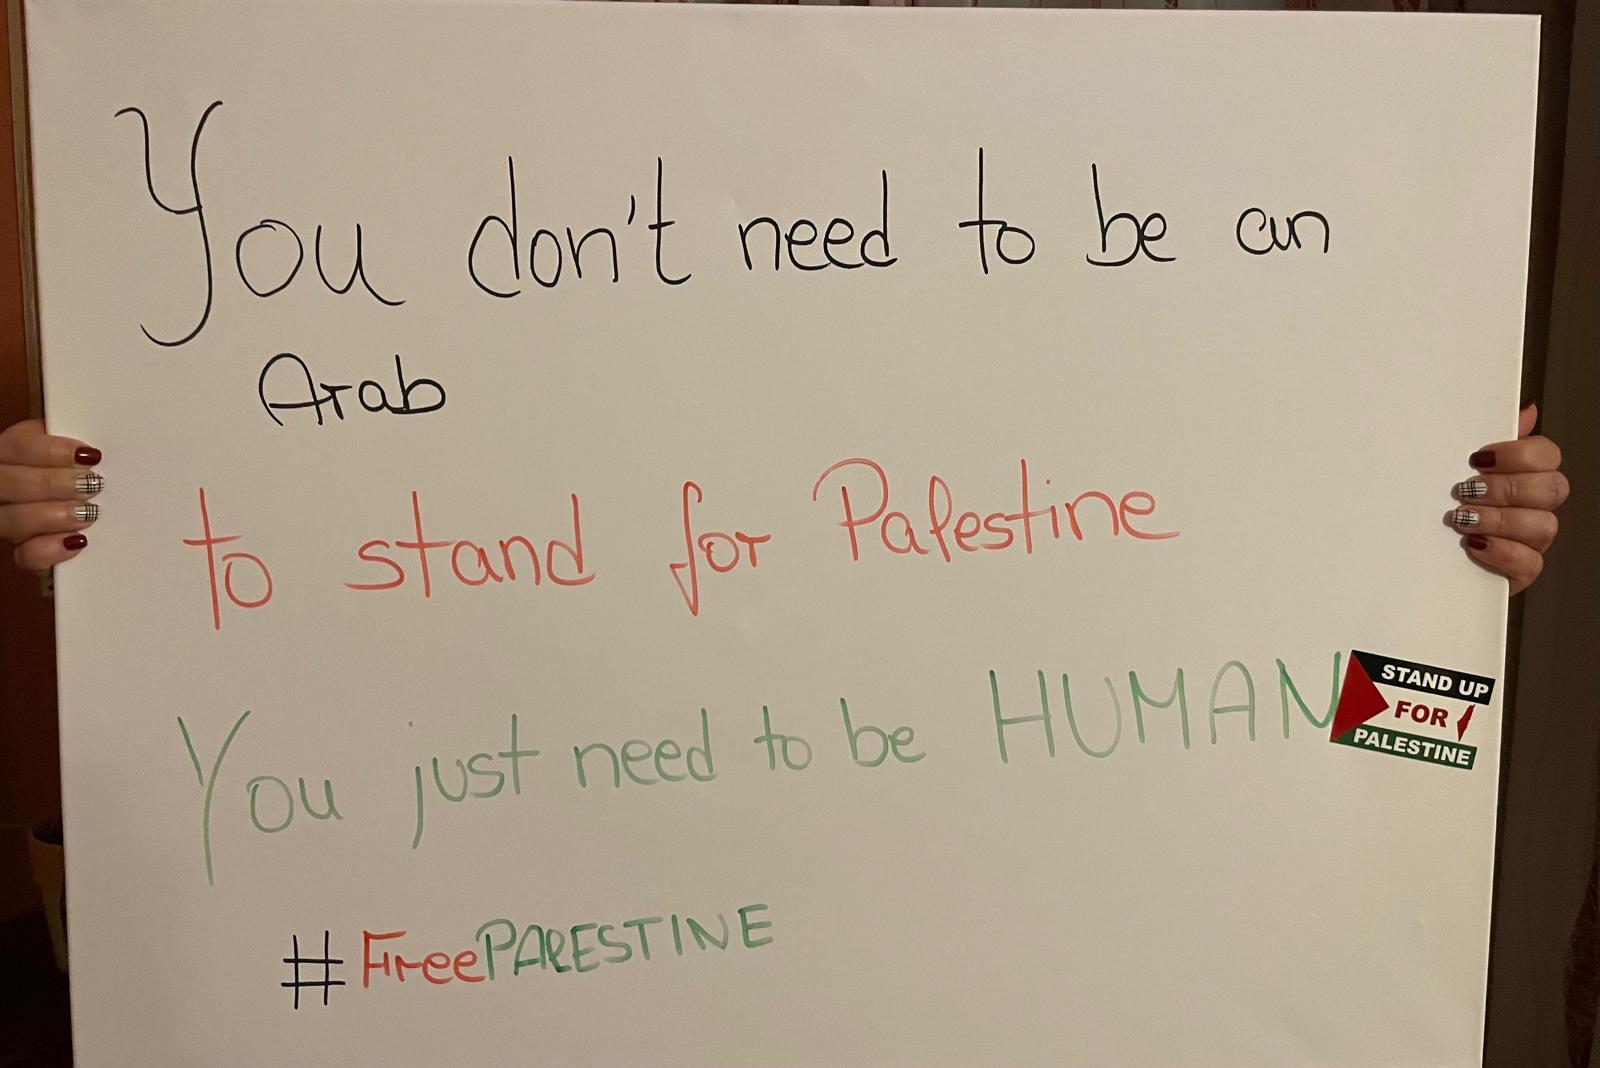 You don't need to be an
Arab
to stand for Palestine
You just need to be HUMAN
STAND UP
FOR
PALESTINE
#FreePALESTINE